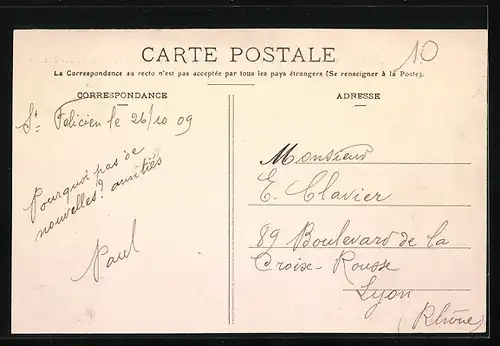 CARTE POSTALE
10
La Correspondance au recto n'est pas acceptée par tous les pays étrangers (Se renseigner à la Poste).
CORRESPONDANCE
St Félicien le 26/10 09
Pourquoi pas de
nouvelles? amitiés
Paul
ADRESSE
Monsieur
E. Clavier
89 Boulevard de la
Croix-Rousse
Lyon
(Rhône)